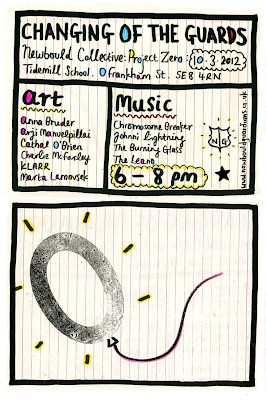 CHANGING OF THE GUARDS
Newbould Collective: Project Zero 10.3.2012
Tidemill School. Ofrankham St. SE8 4RN
Art
Anna Bruder
Arji Manuelpillai
Cathal O'Brien
Charlie McFarley
KLARR
Marta Lemovsek
Music
Chromosome Breaker
Johnni Lightning
The Burning Glass
The Leano
6 - 8 pm
NG
www.newbouldguardians.co.uk